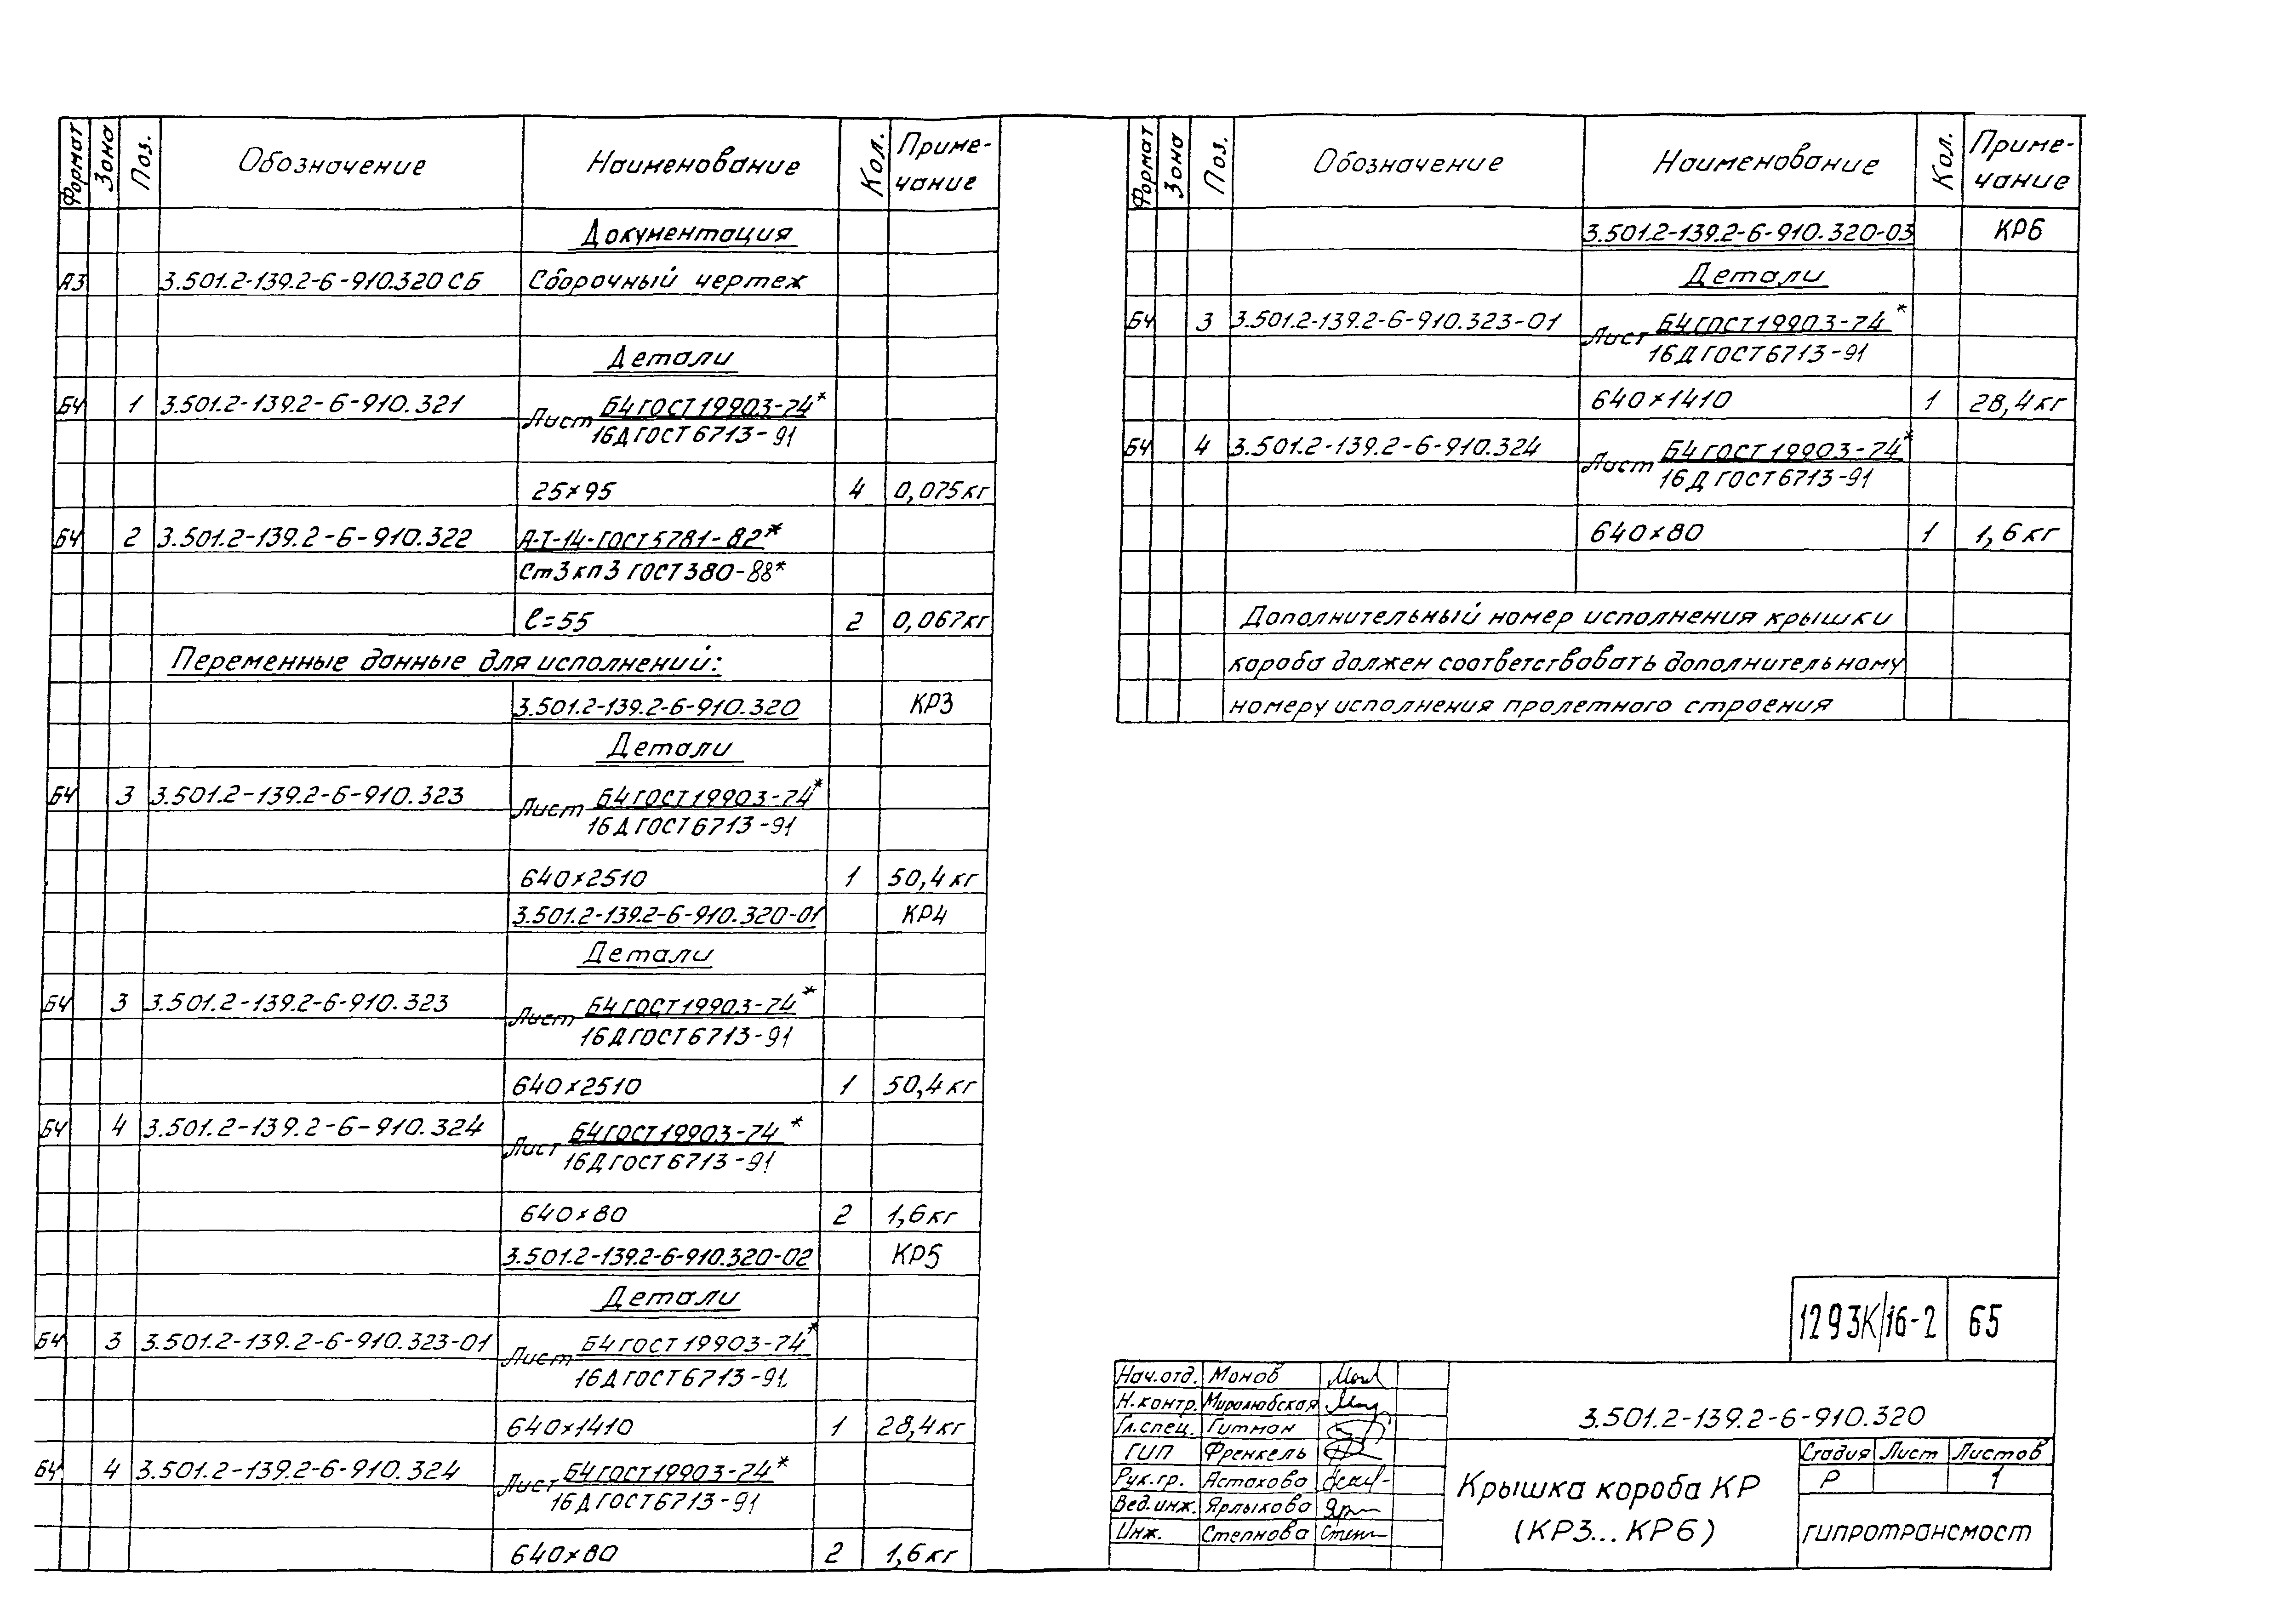 Формат Зона Поз. Обозначение Наименование Кол. Приме-
чание
Документация
А3 3.501.2-139.2-6-910.320 СБ Сборочный чертеж
Детали
БЧ 1 3.501.2-139.2-6-910.321 Лист Б4 ГОСТ 19903-74*
16Д ГОСТ 6713-91
25×95 4 0,075кг
БЧ 2 3.501.2-139.2-6-910.322 А-I-14-ГОСТ 5781-82*
Ст3кп3 ГОСТ 380-88*
ℓ=55 2 0,067кг
Переменные данные для исполнений:
3.501.2-139.2-6-910.320 КР3
Детали
БЧ 3 3.501.2-139.2-6-910.323 Лист Б4 ГОСТ 19903-74*
16Д ГОСТ 6713-91
640×2510 1 50,4кг
3.501.2-139.2-6-910.320-01 КР4
Детали
БЧ 3 3.501.2-139.2-6-910.323 Лист Б4 ГОСТ 19903-74*
16Д ГОСТ 6713-91
640×2510 1 50,4кг
БЧ 4 3.501.2-139.2-6-910.324 Лист Б4 ГОСТ 19903-74*
16Д ГОСТ 6713-91
640×80 2 1,6кг
3.501.2-139.2-6-910.320-02 КР5
Детали
БЧ 3 3.501.2-139.2-6-910.323-01 Лист Б4 ГОСТ 19903-74*
16Д ГОСТ 6713-91
640×1410 1 28,4кг
БЧ 4 3.501.2-139.2-6-910.324 Лист Б4 ГОСТ 19903-74*
16Д ГОСТ 6713-91
640×80 2 1,6кг
Формат Зона Поз. Обозначение Наименование Кол. Приме-
чание
3.501.2-139.2-6-910.320-03 КР6
Детали
БЧ 3 3.501.2-139.2-6-910.323-01 Лист Б4 ГОСТ 19903-74*
16Д ГОСТ 6713-91
640×1410 1 28,4кг
БЧ 4 3.501.2-139.2-6-910.324 Лист Б4 ГОСТ 19903-74*
16Д ГОСТ 6713-91
640×80 1 1,6кг
Дополнительный номер исполнения крышки
короба должен соответствовать дополнительному
номеру исполнения пролетного строения
1293К/16-2 65
Нач.отд. Монов
Н.контр. Миролюбская
Гл.спец. Гитман
ГИП Френкель
Рук.гр. Астахова
Вед.инж. Ярлыкова
Инж. Степнова
3.501.2-139.2-6-910.320
Крышка короба КР
(КР3...КР6)
Стадия Лист Листов
Р 1
ГИПРОТРАНСМОСТ